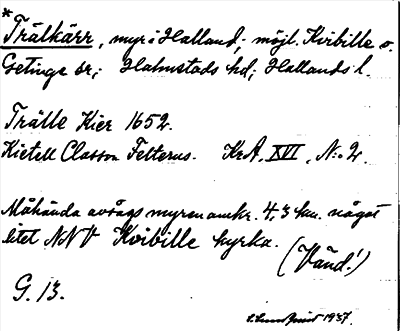 *
Trälkärr, myr i Halland; möjl. Kvibille o.
Getinge sr; Halmstads hd; Hallands l.
Trälle Kier 1652.
Kietell Classon Felterus. KrA, XVI, N:o 2.
Måhända avsågs myren omkr. 4,3 km. något
litet NNV Kvibille kyrka.
(Vänd!)
G. 13.
1937.